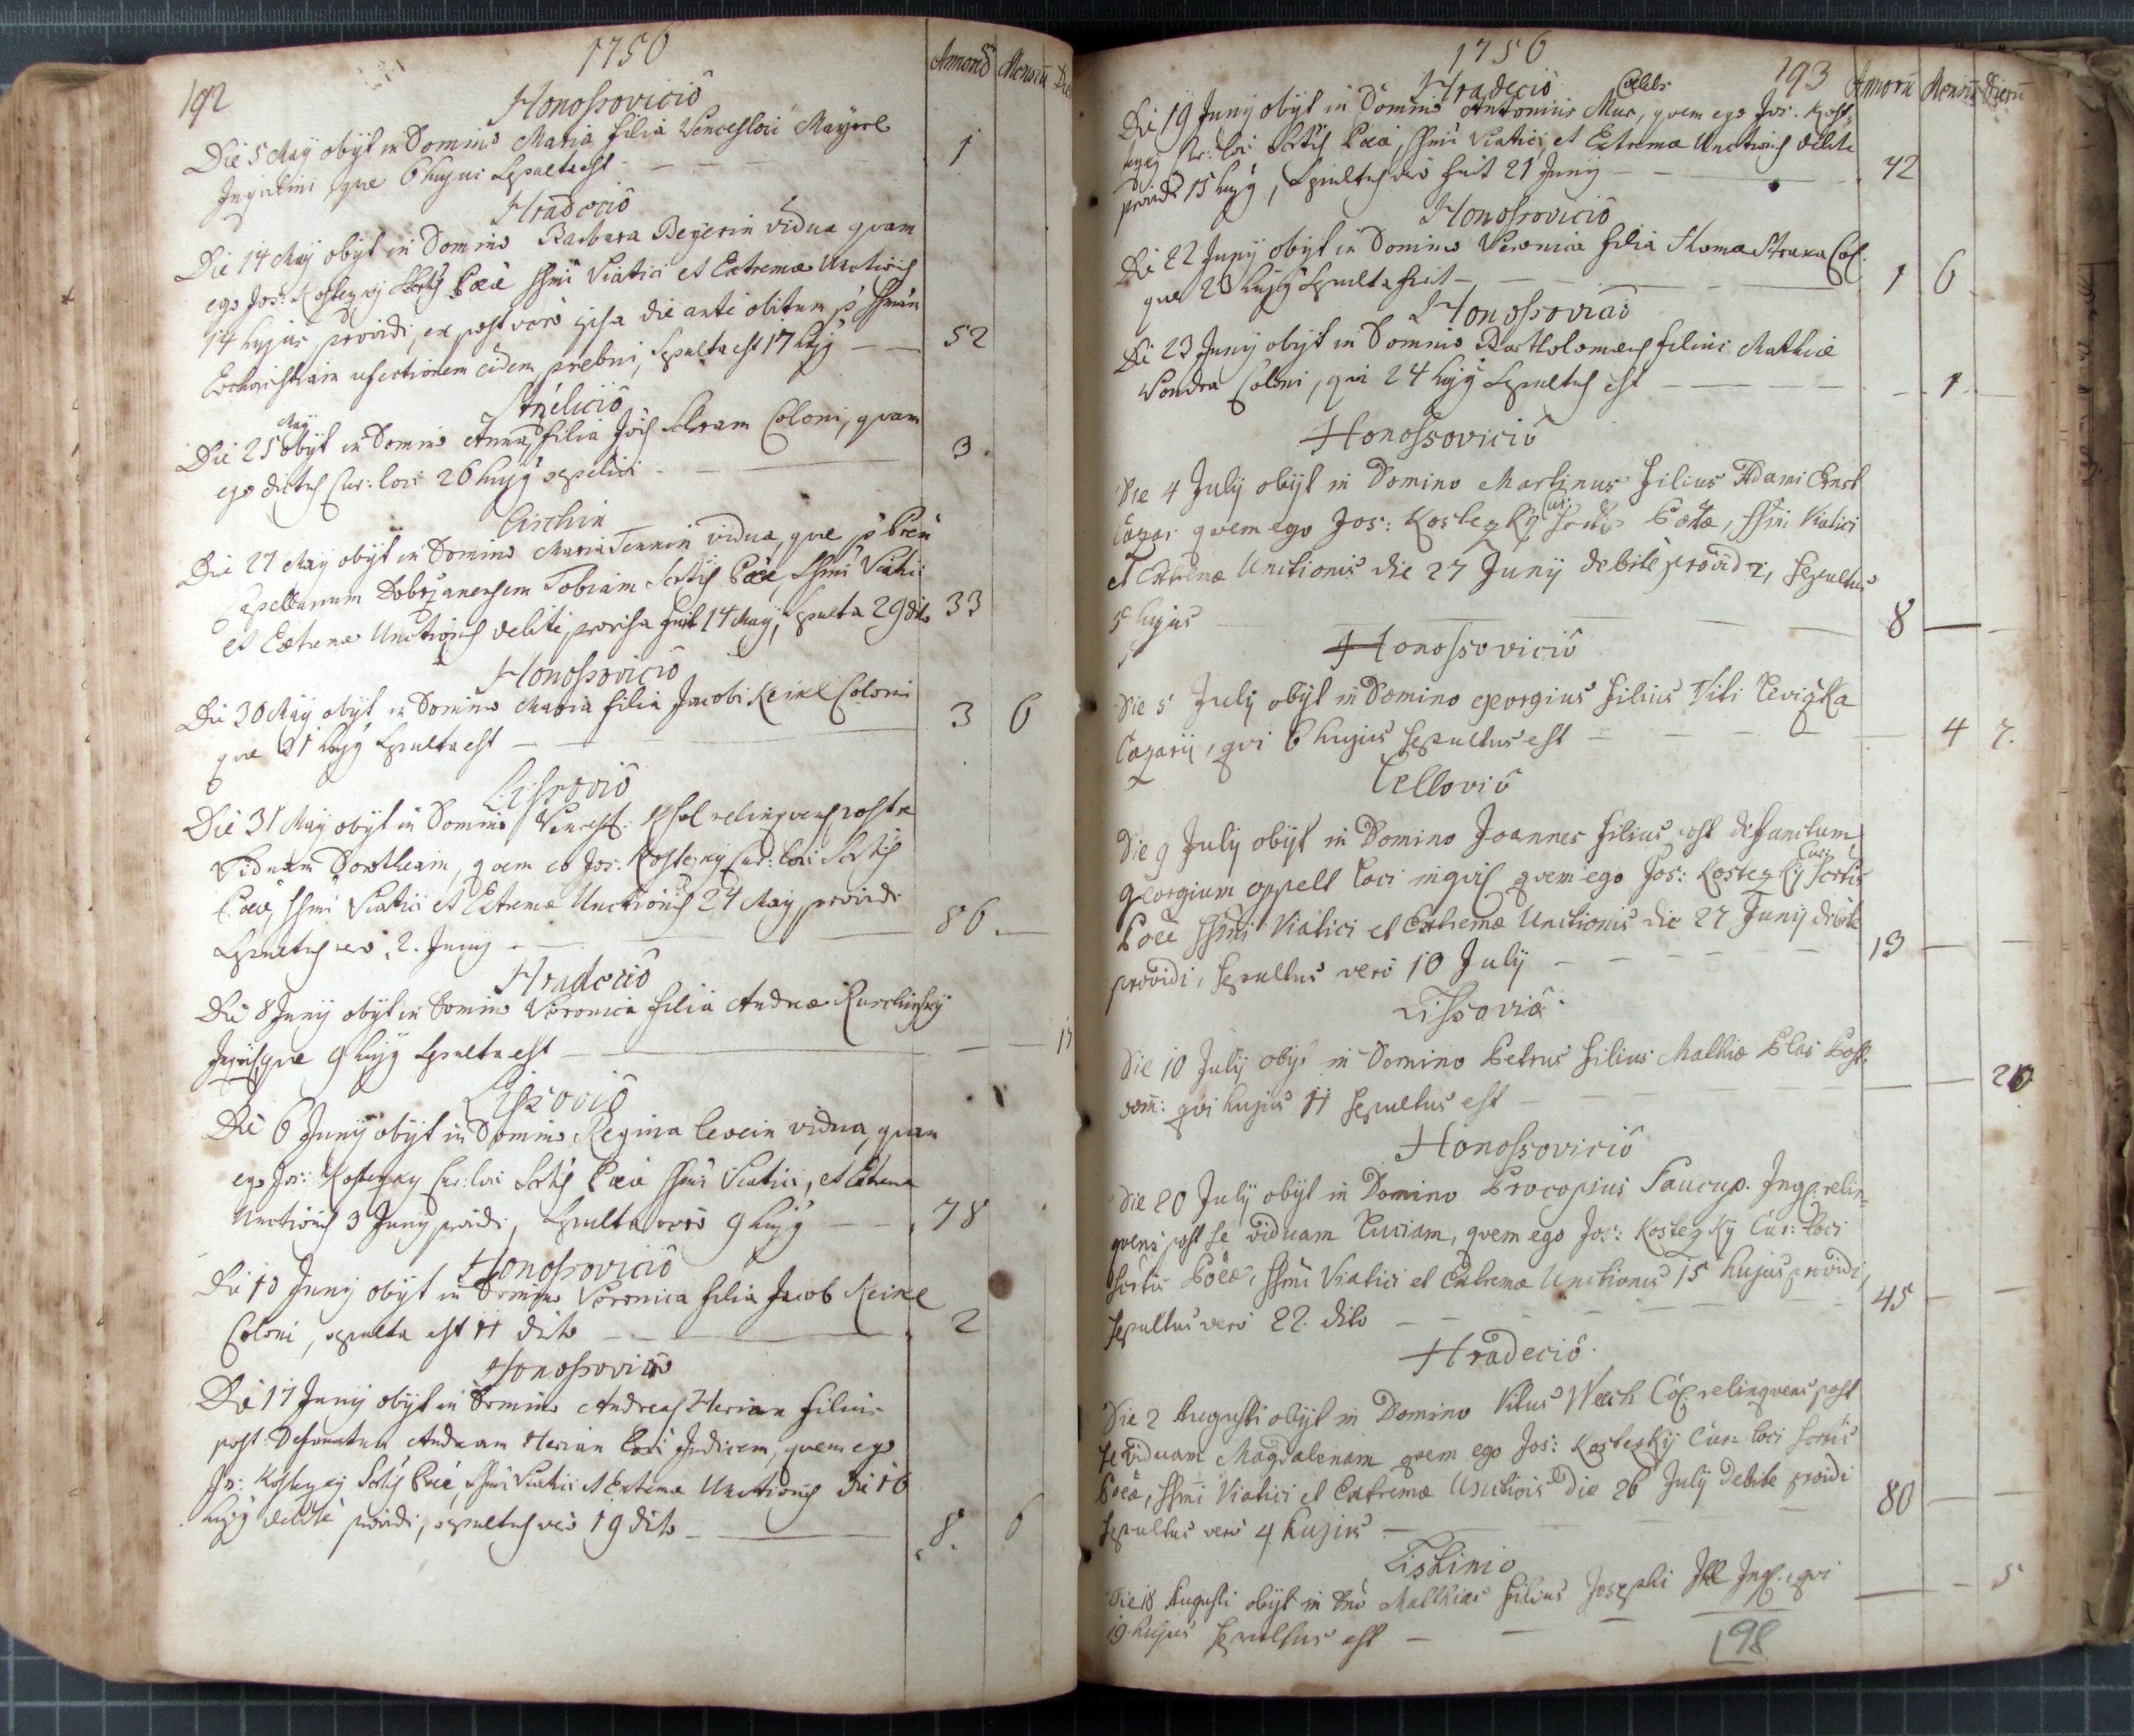 192
1756
Annorū Mensiū Die
Honossovicio
Die 5 May obijt in Domino Maria filia Venceslai Mayerl
Inquilini, que 6 hujus sepulta est 1
Hradecio
Die 14 May obijt in Domino Barbara Beyerin vidua quam
ego Jos: Kostezky Sctis Poeae ssmi Viatici et Extremae Unctionis
14 hujus providi, ex post vero ipsa die ante obitum p ssmam
Eucharistiam refectionem eidem prebui, sepulta est 17 hujg 52
Strelicio
Die 25 May obijt in Domino Anna, filia Jois Schram Coloni, quam
ego dictus Cur: loci 26 hujg sepelivi 3.
Die 27 May obijt in Domino Maria vidua, que p
Capellanum Dobrzanensem Tobiam Sctis Poeae, Ssmi Viatici
et Extremae Unctionis debite provisa fuit 14 May, sepulta 29 dito 33
Honossovicio
Die 30 May obijt in Domino Maria filia Jacobi Keinl Coloni
que 31 hujg Sepulta est 3 6
Lissovio
Die 31 May obijt in Domino Vencesl: relinquens post se
Viduam Dorotheam, quem eg Jos: Kostezky Cur: loci Sctis
Poeae, ssmi Viatici et Extremae Unctionis 24 May providi
Sepultus vero 2. Juny 86.
Hradecio
Die 8 Juny obijt in Domino Veronica filia Andreae
Inquis, que 9 hujg Sepulta est 17
Lissovio
Die 6 Juny obijt in Domino Regina vidua, quam
ego Jos: Kostezky Cur: loci Sctis Poeae ssmi Viatici, et Extremae
Unctionis 3 Juny providi, Sepulta vero 9 hujg 78
Honossovicio
Die 10 Juny obijt in Domino Veronica filia Jacob Keinl
Coloni, sepulta est 11 dito 2
Honossovicio
Die 17 Juny obijt in Domino Andreas Herian filius
post Defunctum Andream Herian loci Judicem, quem ego
Jos: Kostezky Sctis Poeae, ssmi Viatici et Extremae Unctionis die 16
hujg debite providi, sepultus vero 19 dito 8. 6
1756
193
Annorū Mensiū Dierū
Hradecio
Die 19 Juny obijt in Domino Antonius Mur, Caelebs quem ego Jos: Kost-
ezky Cur: loci Sctis Poeae, ssmi Viatici, et Extremae Unctionis debite
providi 15 hujg, Sepultus vero fuit 21 Juny 42
Honossovicio
Die 22 Juny obijt in Domino Veronica filia Thomae Straka Col.
que 23 hujg Sepulta fuit 1 6
Honossovicio
Die 23 Juny obijt in Domino Bartholomaeus filius Mathiae
Vondra Coloni, qui 24 hujg Sepultus est 1
Honossovicio
Die 4 July obijt in Domino Martinus filius Adami Ernst
Cazar: quem ego Jos: Kostezky Cur: Sctis Poeae, ssmi Viatici
et Extremae Unctionis die 27 Juny debite providi, sepultus
5 hujus 8
Honossovicio
Die 5 July obijt in Domino georgius filius Viti Levizka
Cazarij, qvi 6 hujus sepultus est 4 7.
Cellovio
Die 9 July obijt in Domino Joannes filius post defunctum
georgium oppelt loci inqvil qvem ego Jos: Kostezky Cur: Sctis
Poeae ssmi Viatici et Extremae Unctionis die 27 Juny debite
providi, sepultus vero 10 July 13
Lissovio
Die 10 July obijt in Domino Petrus filius Mathiae Blas
qvi hujus 11 sepultus est 20
Honossovicio
Die 20 July obijt in Domino Procopius Faucup. Inq: relin=
qvens post se viduam Luciam, qvem ego Jos: Kostezky Cur: loci
Sctis Poeae, ssmi Viatici et Extremae Unctionis 15 hujus providi,
sepultus vero 22. dito 45
Hradecio
Die 2 Augusti obijt in Domino Vitus Wech Col: relinqvens post
se viduam Magdalenam qvem ego Jos: Kostezky Cur: loci Sctis
Poeae, ssmi Viatici et Extremae Unctionis Die 26 July debite providi
sepultus vero 4 hujus 80
Die 18 Augusti obijt in Dno Mathias filius Josephi Inq:, qvi
19 hujus sepultus est 5
98